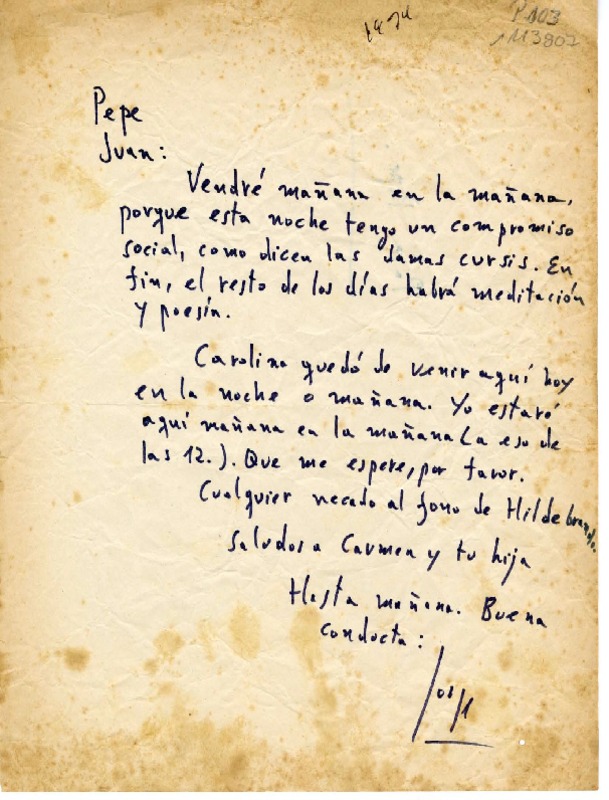 1974
P103
113802
Pepe
Juan:
Vendré mañana en la mañana,
porque esta noche tengo un compromiso
social, como dicen las damas cursis. En
fin, el resto de los días habrá meditación
y poesía.
Carolina quedó de venir aquí hoy
en la noche o mañana. Yo estaré
aquí mañana en la mañana (a eso de
las 12.). Que me espere, por favor.
Cualquier recado al fono de Hildebrando.
Saludos a Carmen y tu hija
Hasta mañana. Buena
conducta: